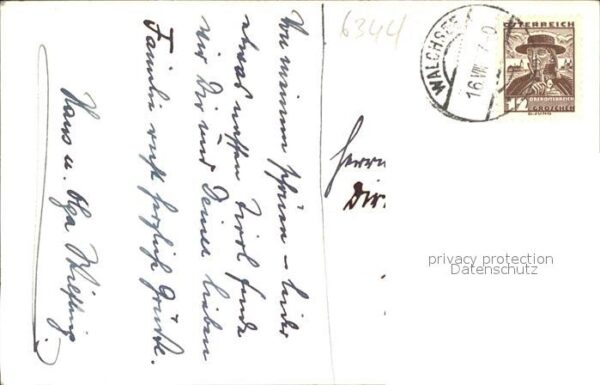 Von meinem schönen – leider
etwas nassen Tirol sende
wir Dir und Deiner lieben
Familie recht herzliche Grüsse.
Hans u. Olga
6344
WALCHSEE
16 VIII
ÖSTERREICH
12
OBERÖSTERREICH
GROSCHEN
Herrn
Dir.
privacy protection
Datenschutz